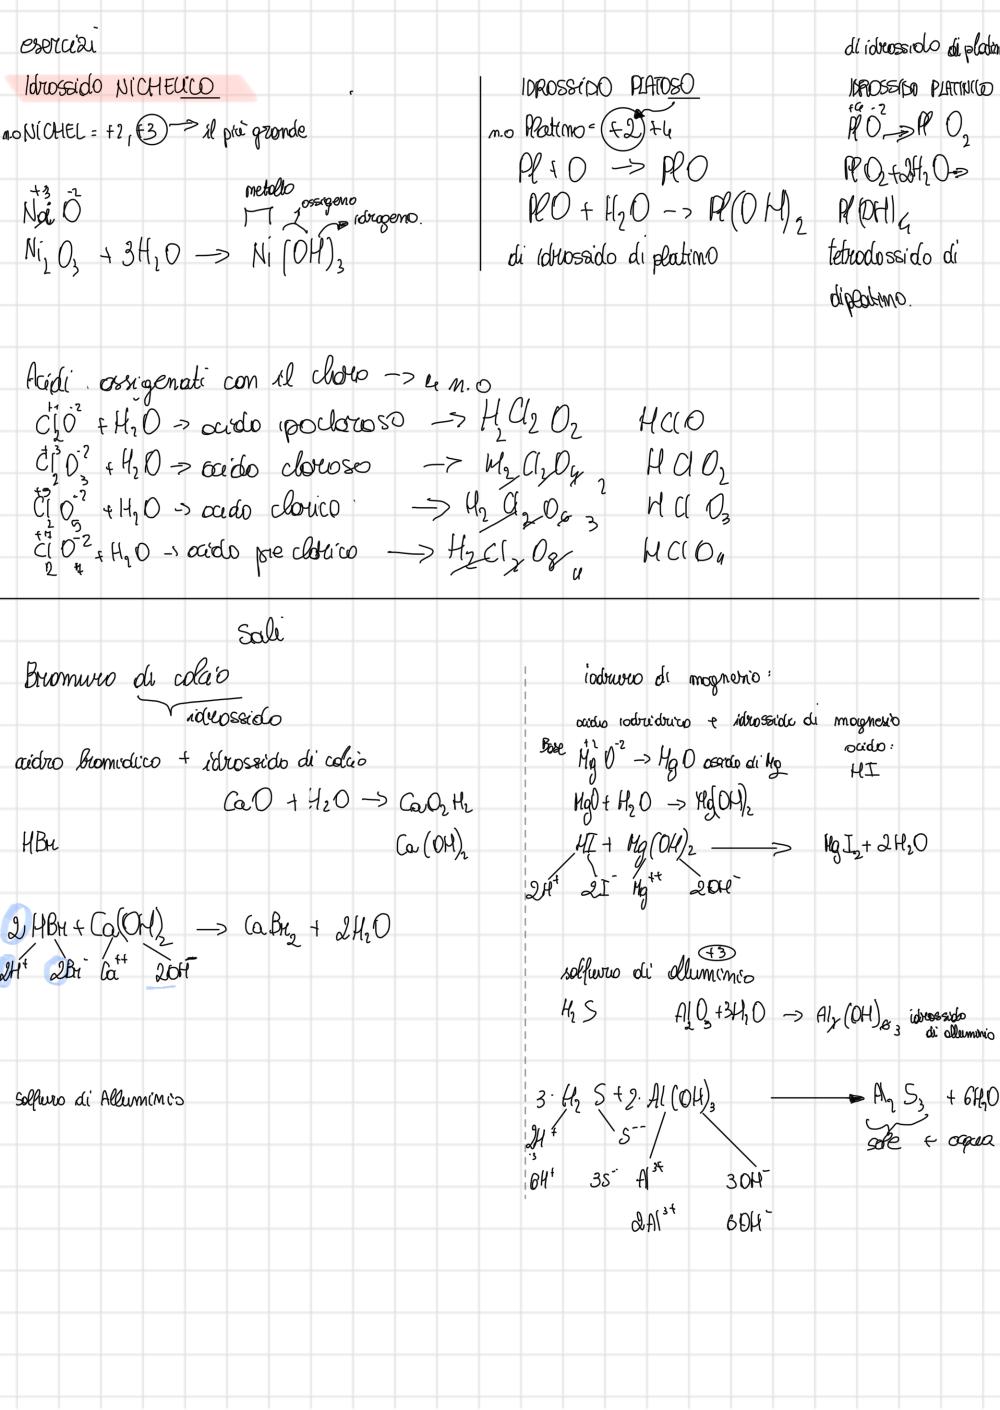 esercizi
Idrossido NICHELICO
n.o NICHEL = +2, +3 → il più grande
+3 -2
Ni O
metallo
ossigeno
idrogeno.
Ni2 O3 + 3H2O → Ni (OH)3
IDROSSIDO PLATOSO
n.o Platino = +2 +4
Pl + O → PlO
PlO + H2O → Pl(OH)2
di idrossido di platino
di idrossido di platin
IDROSSIDO PLATINICO
+4 -2
Pl O → Pl O2
Pl O2 + 2H2O →
Pl(OH)4
tetrodossido di
diplatino.
Acidi ossigenati con il cloro → 4 n.o
+1 -2
Cl2O + H2O → acido ipocloroso → H2 Cl2 O2 HClO
+3 -2
Cl2O3 + H2O → acido cloroso → H2 Cl2O4 2 H Cl O2
+5 -2
Cl2O5 + H2O → acido clorico → H2 Cl2O6 3 H Cl O3
+7 -2
Cl2O7 + H2O → acido pre clorico → H2Cl2O8 4 HClO4
Sali
Bromuro di calcio
idrossido
acidro bromidico + idrossido di calcio
CaO + H2O → CaO2H2
HBr Ca(OH)2
2HBr + Ca(OH)2 → CaBr2 + 2H2O
2H+ 2Br- Ca++ 2OH-
solfuro di Alluminio
ioduro di magnesio:
acidro iodridrico e idrossido di magnesio
Base +2 -2
Mg O → MgO ossido di Mg
acido:
HI
MgO + H2O → Mg(OH)2
HI + Mg(OH)2 → MgI2 + 2H2O
2H+ 2I- Mg++ 2OH-
+3
solfuro di alluminio
H2 S Al2O3 + 3H2O → Al2(OH)6 3 idrossido
di alluminio
3· H2 S + 2· Al(OH)3 → Al2 S3 + 6H2O
2H+ S-- sale + acqua
·3
6H+ 3S- Al3+ 3OH-
2Al3+ 6OH-